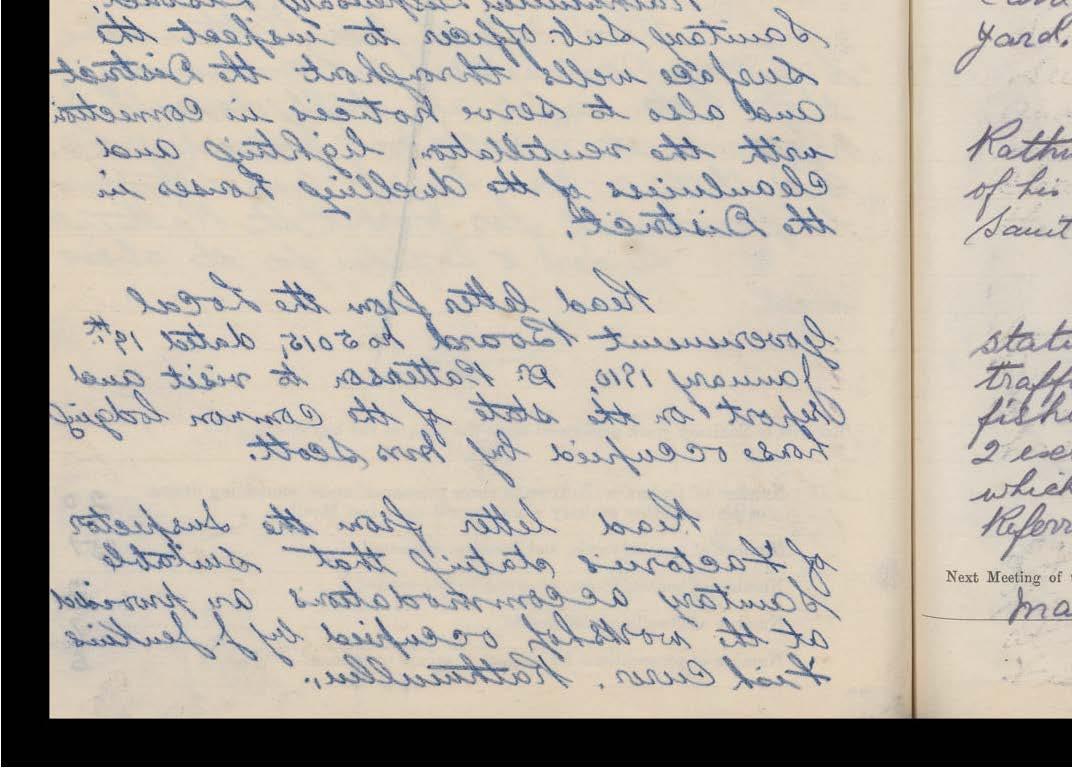 Sanitary Sub. Officer to inspect the
surface wells throughout the District
and also to serve notices in connection
with the ventilation, lighting and
cleanliness of the dwelling houses in
the District.
Read letter from the Local
Government Board No 5015, dated 19th
January 1910, Dr Patterson to visit and
Report on the state of the common lodging
house occupied by Mrs Scott.
Read letter from the Inspector
of Factories stating that suitable
Sanitary accommodations provided
at the workshop occupied by J. Jenkins
Fish Curer, Rathmullen.
yard.
of his
Sanit
state
traff
fish
2
which
Referr
Next Meeting of
Ma